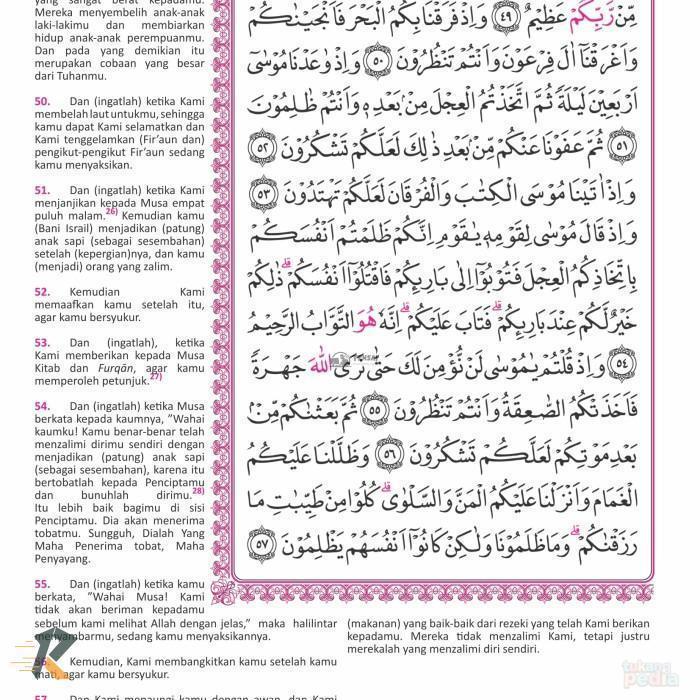 yang sangat berat kepadamu.
Mereka menyembelih anak-anak
laki-lakimu dan membiarkan
hidup anak-anak perempuanmu.
Dan pada yang demikian itu
merupakan cobaan yang besar
dari Tuhanmu.
50. Dan (ingatlah) ketika Kami
membelah laut untukmu, sehingga
kamu dapat Kami selamatkan dan
Kami tenggelamkan (Fir’aun dan)
pengikut-pengikut Fir’aun sedang
kamu menyaksikan.
51. Dan (ingatlah) ketika Kami
menjanjikan kepada Musa empat
puluh malam.26) Kemudian kamu
(Bani Israil) menjadikan (patung)
anak sapi (sebagai sesembahan)
setelah (kepergian)nya, dan kamu
(menjadi) orang yang zalim.
52. Kemudian Kami
memaafkan kamu setelah itu,
agar kamu bersyukur.
53. Dan (ingatlah), ketika
Kami memberikan kepada Musa
Kitab dan Furqān, agar kamu
memperoleh petunjuk.27)
54. Dan (ingatlah) ketika Musa
berkata kepada kaumnya, ”Wahai
kaumku! Kamu benar-benar telah
menzalimi dirimu sendiri dengan
menjadikan (patung) anak sapi
(sebagai sesembahan), karena itu
bertobatlah kepada Penciptamu
dan bunuhlah dirimu.28)
Itu lebih baik bagimu di sisi
Penciptamu. Dia akan menerima
tobatmu. Sungguh, Dialah Yang
Maha Penerima tobat, Maha
Penyayang.
55. Dan (ingatlah) ketika kamu
berkata, ”Wahai Musa! Kami
tidak akan beriman kepadamu
sebelum kami melihat Allah dengan jelas,” maka halilintar
menyambarmu, sedang kamu menyaksikannya.
56. Kemudian, Kami membangkitkan kamu setelah kamu
mati, agar kamu bersyukur.
57. Dan Kami menaungi kamu dengan awan, dan Kami
مِّنْ رَّبِّكُمْ عَظِيْمٌ ٤٩ وَاِذْ فَرَقْنَا بِكُمُ الْبَحْرَ فَاَنْجَيْنٰكُمْ
وَاَغْرَقْنَآ اٰلَ فِرْعَوْنَ وَاَنْتُمْ تَنْظُرُوْنَ ٥٠ وَاِذْ وٰعَدْنَا مُوْسٰٓى
اَرْبَعِيْنَ لَيْلَةً ثُمَّ اتَّخَذْتُمُ الْعِجْلَ مِنْۢ بَعْدِهٖ وَاَنْتُمْ ظٰلِمُوْنَ
٥١ ثُمَّ عَفَوْنَا عَنْكُمْ مِّنْۢ بَعْدِ ذٰلِكَ لَعَلَّكُمْ تَشْكُرُوْنَ ٥٢
وَاِذْ اٰتَيْنَا مُوْسَى الْكِتٰبَ وَالْفُرْقَانَ لَعَلَّكُمْ تَهْتَدُوْنَ ٥٣
وَاِذْ قَالَ مُوْسٰى لِقَوْمِهٖ يٰقَوْمِ اِنَّكُمْ ظَلَمْتُمْ اَنْفُسَكُمْ
بِاتِّخَاذِكُمُ الْعِجْلَ فَتُوْبُوْٓا اِلٰى بَارِىِٕكُمْ فَاقْتُلُوْٓا اَنْفُسَكُمْۗ ذٰلِكُمْ
خَيْرٌ لَّكُمْ عِنْدَ بَارِىِٕكُمْۗ فَتَابَ عَلَيْكُمْۗ اِنَّهٗ هُوَ التَّوَّابُ الرَّحِيْمُ
٥٤ وَاِذْ قُلْتُمْ يٰمُوْسٰى لَنْ نُّؤْمِنَ لَكَ حَتّٰى نَرَى اللّٰهَ جَهْرَةً
فَاَخَذَتْكُمُ الصّٰعِقَةُ وَاَنْتُمْ تَنْظُرُوْنَ ٥٥ ثُمَّ بَعَثْنٰكُمْ مِّنْۢ
بَعْدِ مَوْتِكُمْ لَعَلَّكُمْ تَشْكُرُوْنَ ٥٦ وَظَلَّلْنَا عَلَيْكُمُ
الْغَمَامَ وَاَنْزَلْنَا عَلَيْكُمُ الْمَنَّ وَالسَّلْوٰىۗ كُلُوْا مِنْ طَيِّبٰتِ مَا
رَزَقْنٰكُمْۗ وَمَا ظَلَمُوْنَا وَلٰكِنْ كَانُوْٓا اَنْفُسَهُمْ يَظْلِمُوْنَ ٥٧
(makanan) yang baik-baik dari rezeki yang telah Kami berikan
kepadamu. Mereka tidak menzalimi Kami, tetapi justru
merekalah yang menzalimi diri sendiri.
tukang
pedia